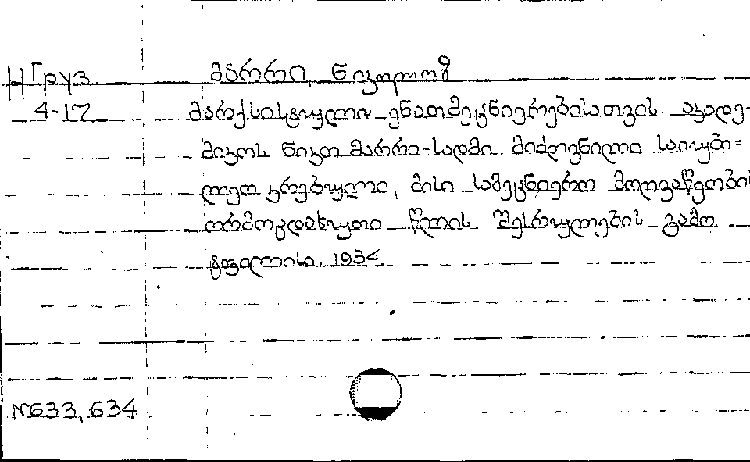 НГруз მარრი, ნიკოლოზ
4-17 მარქსისტული ენათმეცნიერებისათვის. აკადე-
მიკოს ნიკო მარრი-სადმი მიძღვნილი საიუბი=
ლეო კრებული, მისი სამეცნიერო მოღვაწეობის
ორმოცდახუთი წლის შესრულების გამო.
ტფილისი, 1934
№633, 634